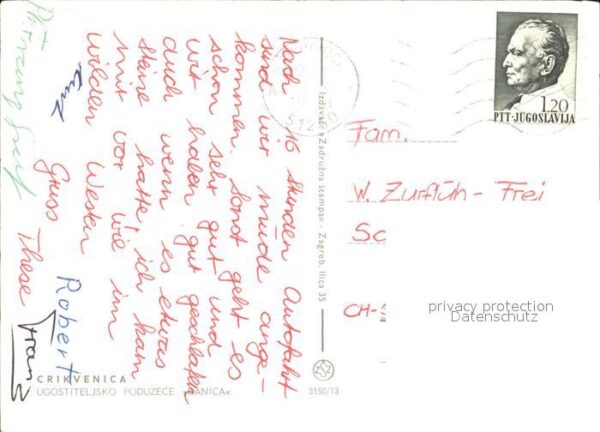 Nach 16 stunden Autofahrt
sind wir müde ange-
kommen. Sonst geht es
schon sehr gut und
wir haben gut geschlafen
auch wenn es etwas
steine hatte ich kam
mir vor wie im
wilden Westen
Gruss These
Robert
Franz
Fam.
W. Zurflüh - Frei
Sc
CH-
1.20
PTT-JUGOSLAVIJA
Izdavač: Zadružna štampa - Zagreb, Ilica 35
CRIKVENICA
UGOSTITELJSKO PODUZEĆE
3150/13
privacy protection
Datenschutz